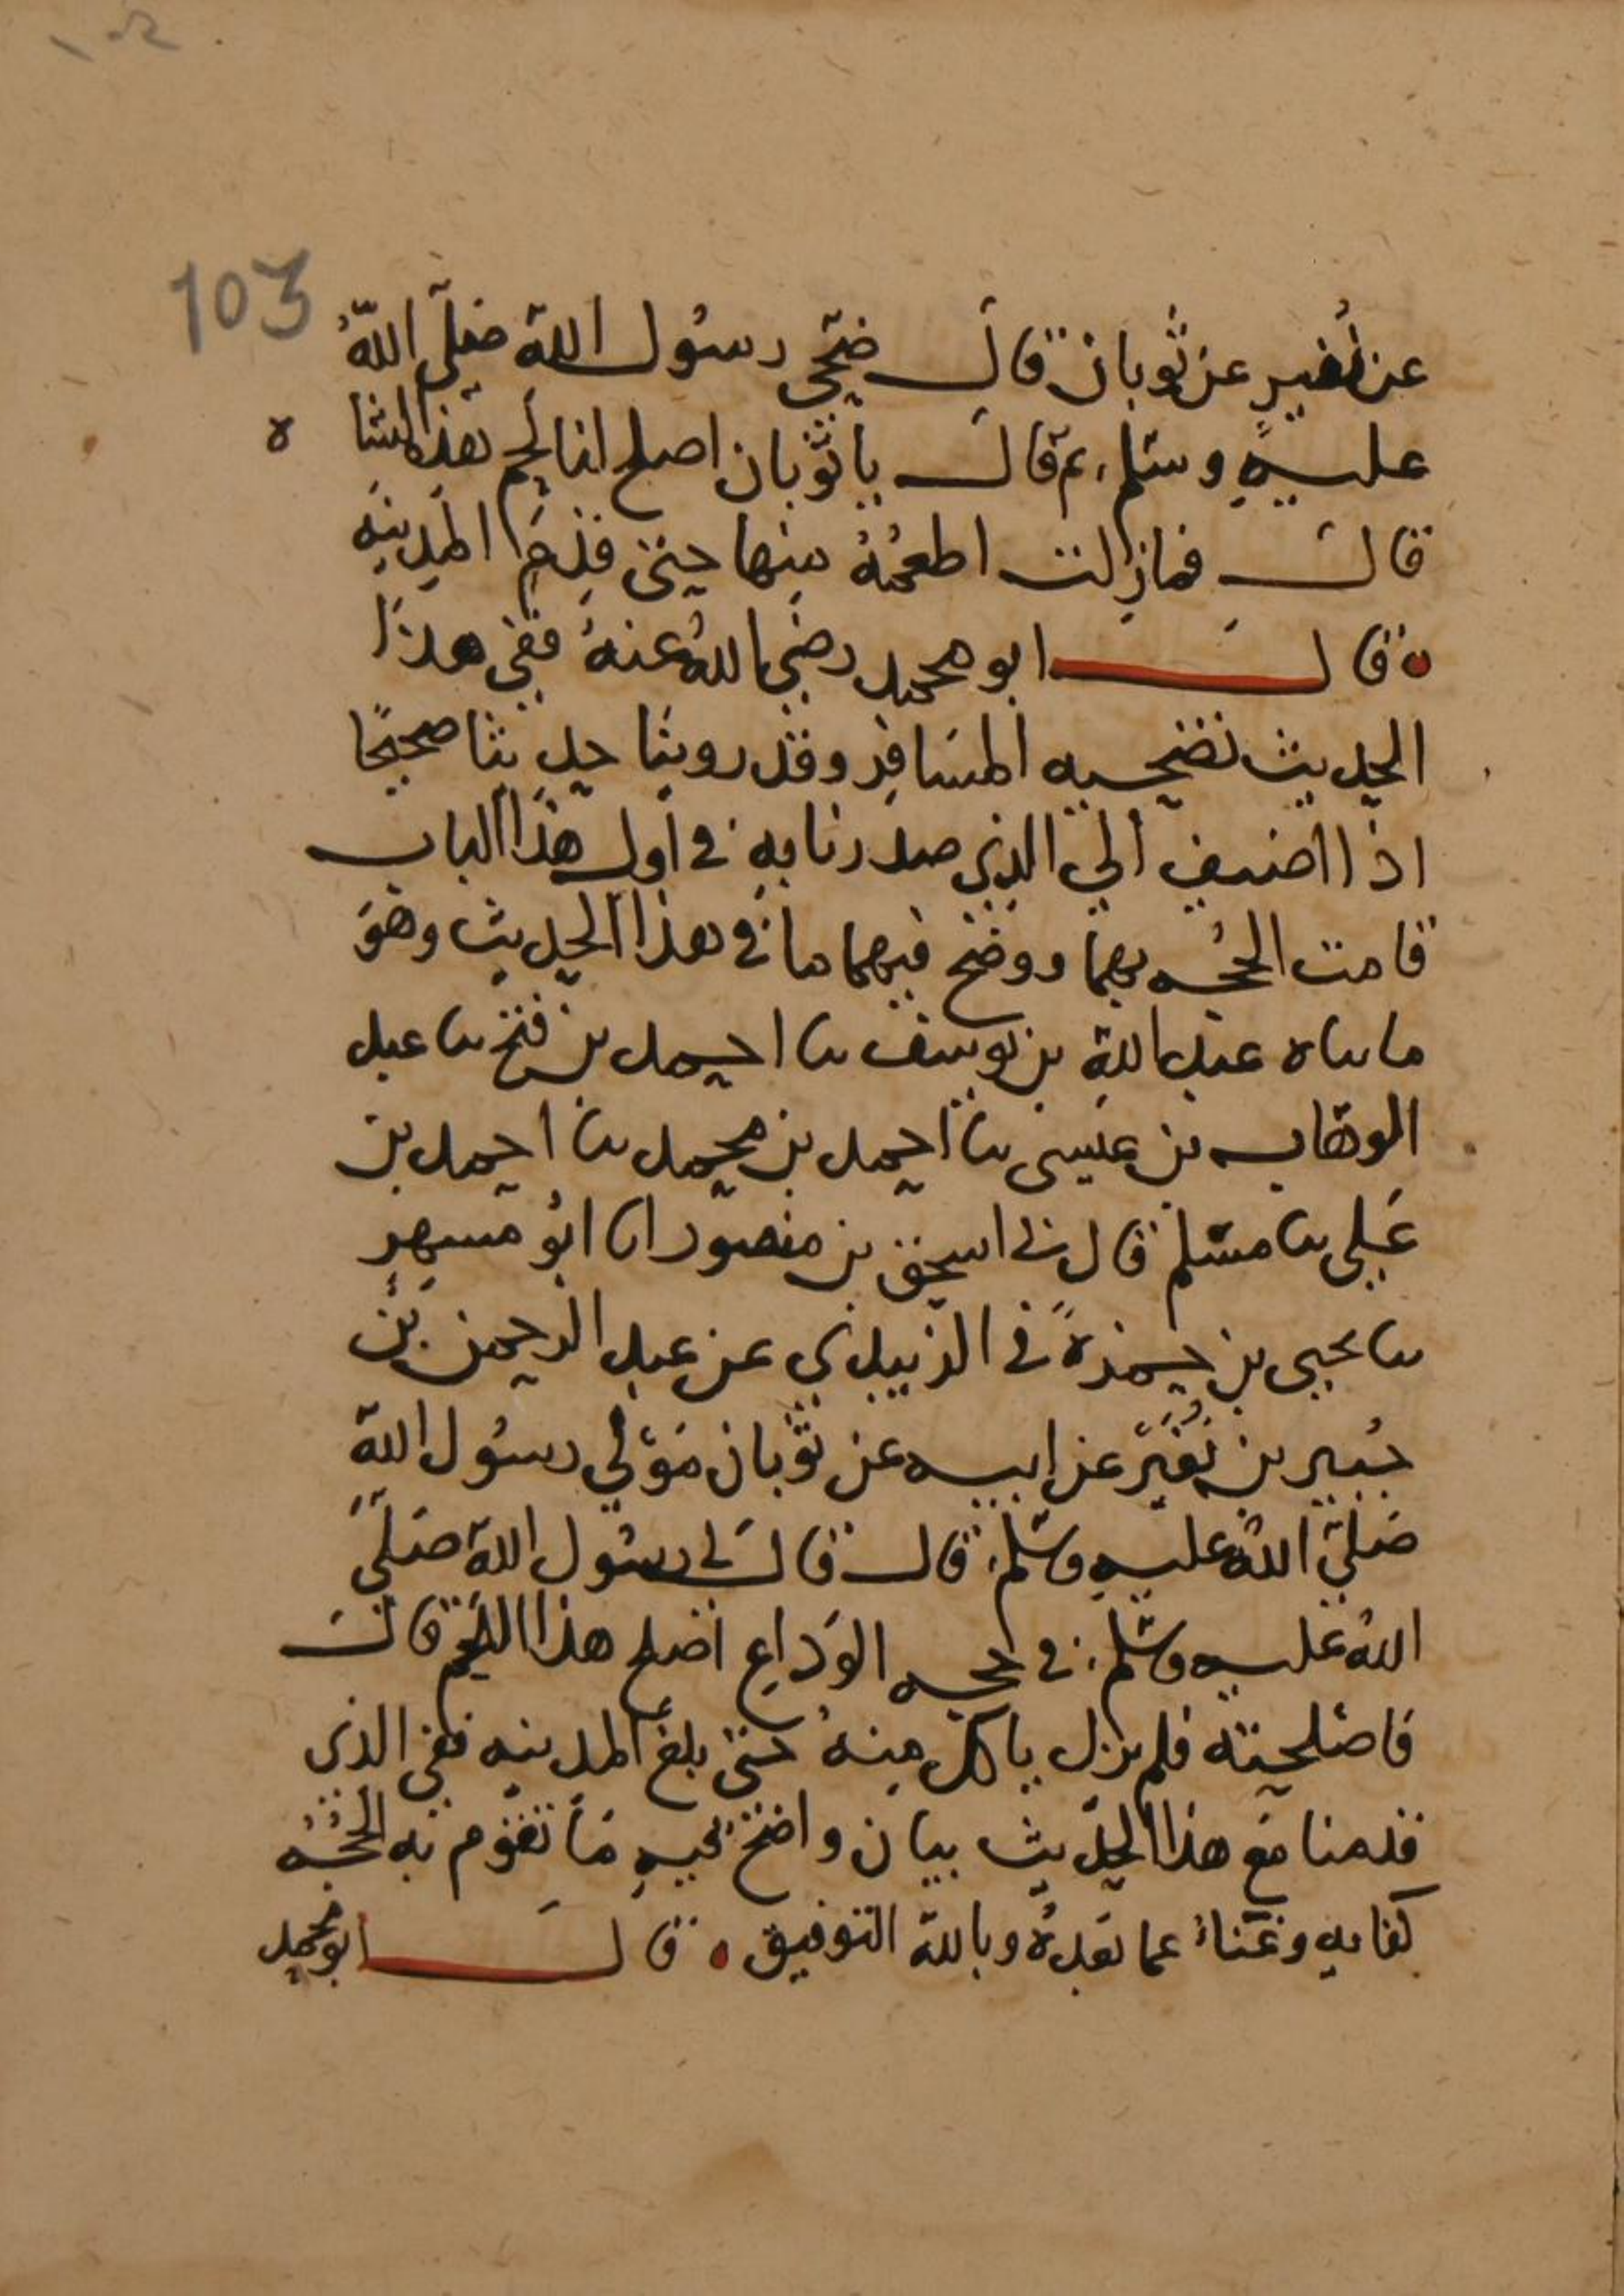 103
عن نُفيرٍ عن ثوبان قالَ ضحّى رسُول الله صلى اللهُ
عليهِ وسلم ثم قالَ يا ثوبان اصلح لنا لحم هذه الشاة
قالَ فمازلت اطعمُهُ منها حتى قدِمَ المدينه
قالَ ابو محمد رضي اللهُ عنهُ ففي هذا
الحديث تضحيه المسَافر وقد روينا حديثا صحيحًا
اذا اضيف الى الذي صدرنا به في أول هذا الباب
قامت الحجُه بهما ووضح فيهما ما في هذا الحديث وهوَ
ما ساه عبد الله بن يوسف سا احمد بن فتح سا عبد
الوهاب بن عيسى سا احمد بن محمد سا احمد بن
عَلي سا مسلم قال ني اسحق بن منصور انا ابُو مسهِرٍ
سا يحيى بن حمزةً في الزبيدي عن عبد الرحمن بْن
جُبير بن نُفَيرٍ عن ابيه عن ثوبان مَوْلى رسُول الله
صَلى اللهُ عليهِ وسلم قالَ قالَ لي رسُول الله صَلى
اللهُ عَليه وسلم في حجه الوَداعِ اصلح هذا اللحم قالَ
فاصلحته فلم يزل ياكل منهُ حتى بلغ المدينه ففي الذي
قدمنا مع هذا الحديث بيان واضح فيهِ مَا تقوم به الحجُه
كفايه وغَناءُ عما بَعدهُ وبالله التوفيق قالَ ابو محمد